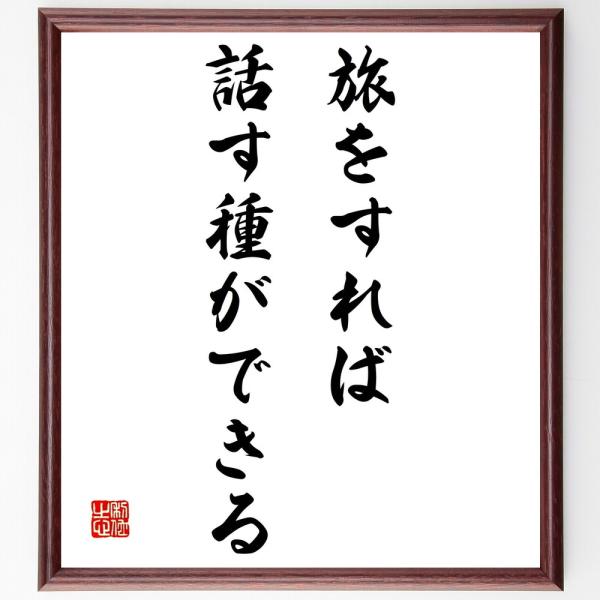 旅をすれば
話す種ができる